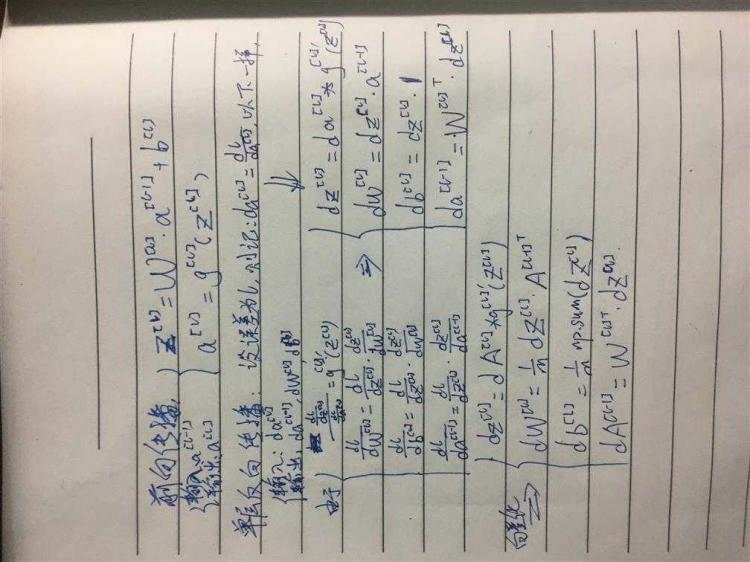 前向传播: { z^[l] = W^[l] · a^[l-1] + b^[l]
输入a^[l-1] 输出: a^[l] { a^[l] = g^[l](z^[l])
单层反向传播: 设误差为l, 则记: da^[l] = dl/da^[l], 以下一样,
{输入: da^[l]
输出, da^[l-1], dW^[l], db^[l]
由于 { dl/dz^[l] / dl/da^[l] = g^[l]'(z^[l])
dl/dW^[l] = dl/dz^[l] · dz^[l]/dW^[l]
dl/db^[l] = dl/dz^[l] · dz^[l]/dW^[l]
dl/da^[l-1] = dl/dz^[l] · dz^[l]/da^[l-1]
⇒ { dz^[l] = da^[l] * g^[l]'(z^[l])
dW^[l] = dz^[l] · a^[l-1]
db^[l] = dz^[l] · 1
da^[l-1] = W^[l]T · dz^[l]
向量化 ⇒ { dz^[l] = dA^[l] * g^[l]'(Z^[l])
dW^[l] = 1/m dZ^[l] · A^[l-1]T
db^[l] = 1/m np.sum(dZ^[l])
dA^[l-1] = W^[l]T · dZ^[l].